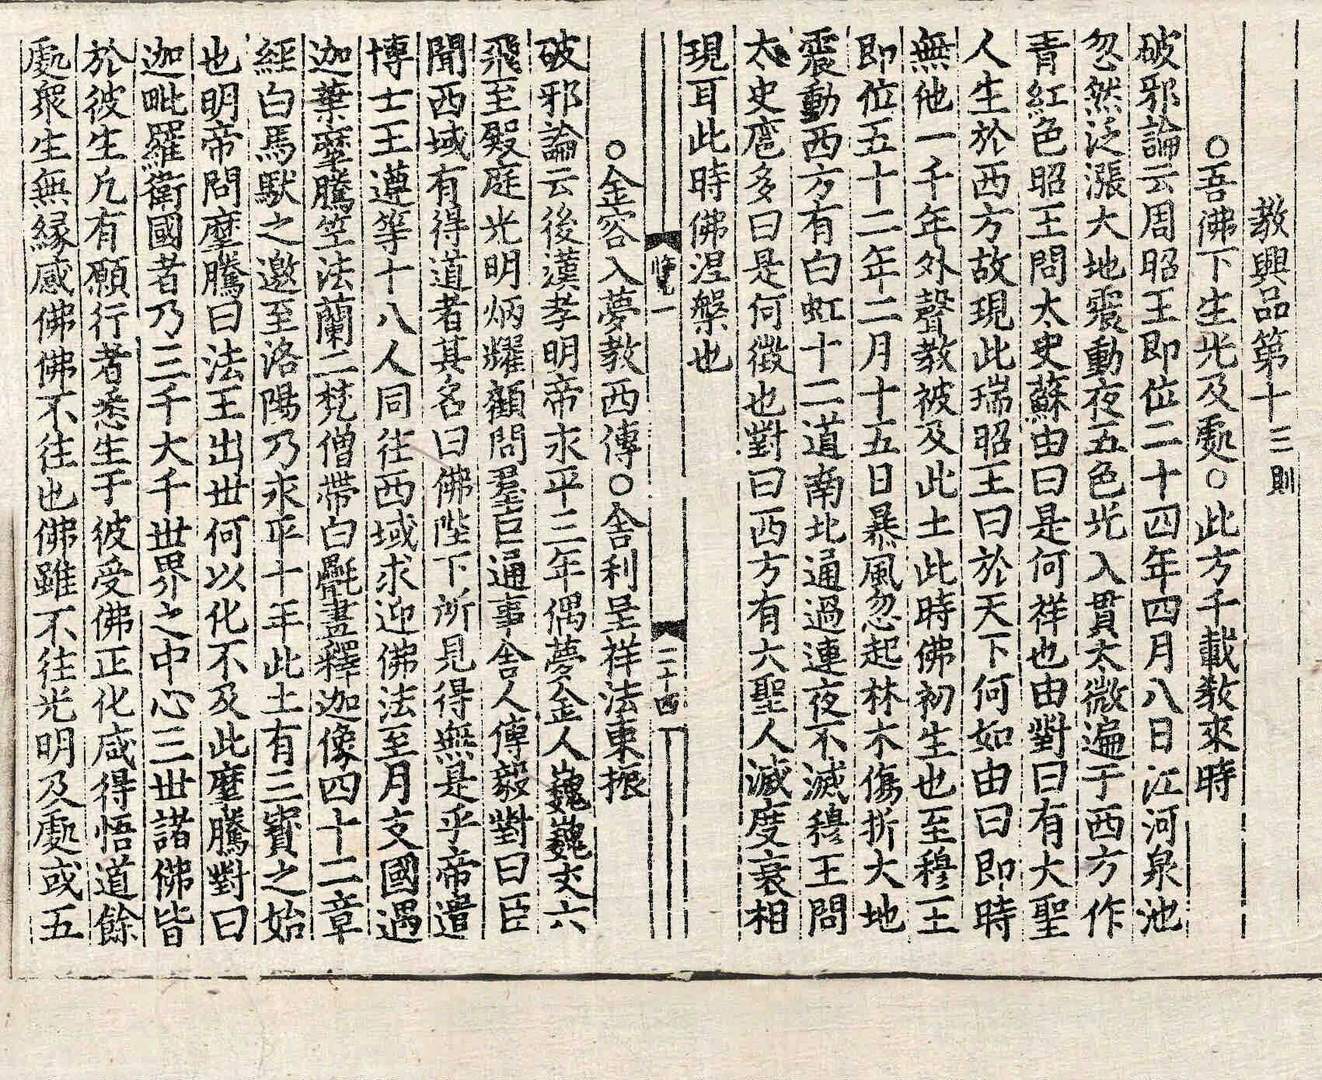 教興品第十三則
○吾佛下生光及處○此方千載教來時
破邪論云周昭王即位二十四年四月八日江河泉池
忽然泛漲大地震動夜五色光入貫太微遍于西方作
青紅色昭王問太史蘇由曰是何祥也由對曰有大聖
人生於西方故現此瑞昭王曰於天下何如由曰即時
無他一千年外聲教被及此土此時佛初生也至穆王
即位五十二年二月十五日暴風忽起林木傷折大地
震動西方有白虹十二道南北通過連夜不滅穆王問
太史扈多曰是何徵也對曰西方有大聖人滅度衰相
現耳此時佛涅槃也
二十四
○金容入夢教西傳○舍利呈祥法東振
破邪論云後漢孝明帝永平三年偶夢金人巍巍丈六
飛至殿庭光明炳耀顧問羣臣通事舍人傅毅對曰臣
聞西域有得道者其名曰佛陛下所見得無是乎帝遣
博士王遵等十八人同往西域求迎佛法至月支國遇
迦葉摩騰竺法蘭二梵僧帶白㲲畫釋迦像四十二章
經白馬馱之邀至洛陽乃永平十年此土有三寶之始
也明帝問摩騰曰法王出世何以化不及此摩騰對曰
迦毗羅衛國者乃三千大千世界之中心三世諸佛皆
於彼生凡有願行者悉生于彼受佛正化咸得悟道餘
處眾生無緣感佛佛不往也佛雖不往光明及處或五